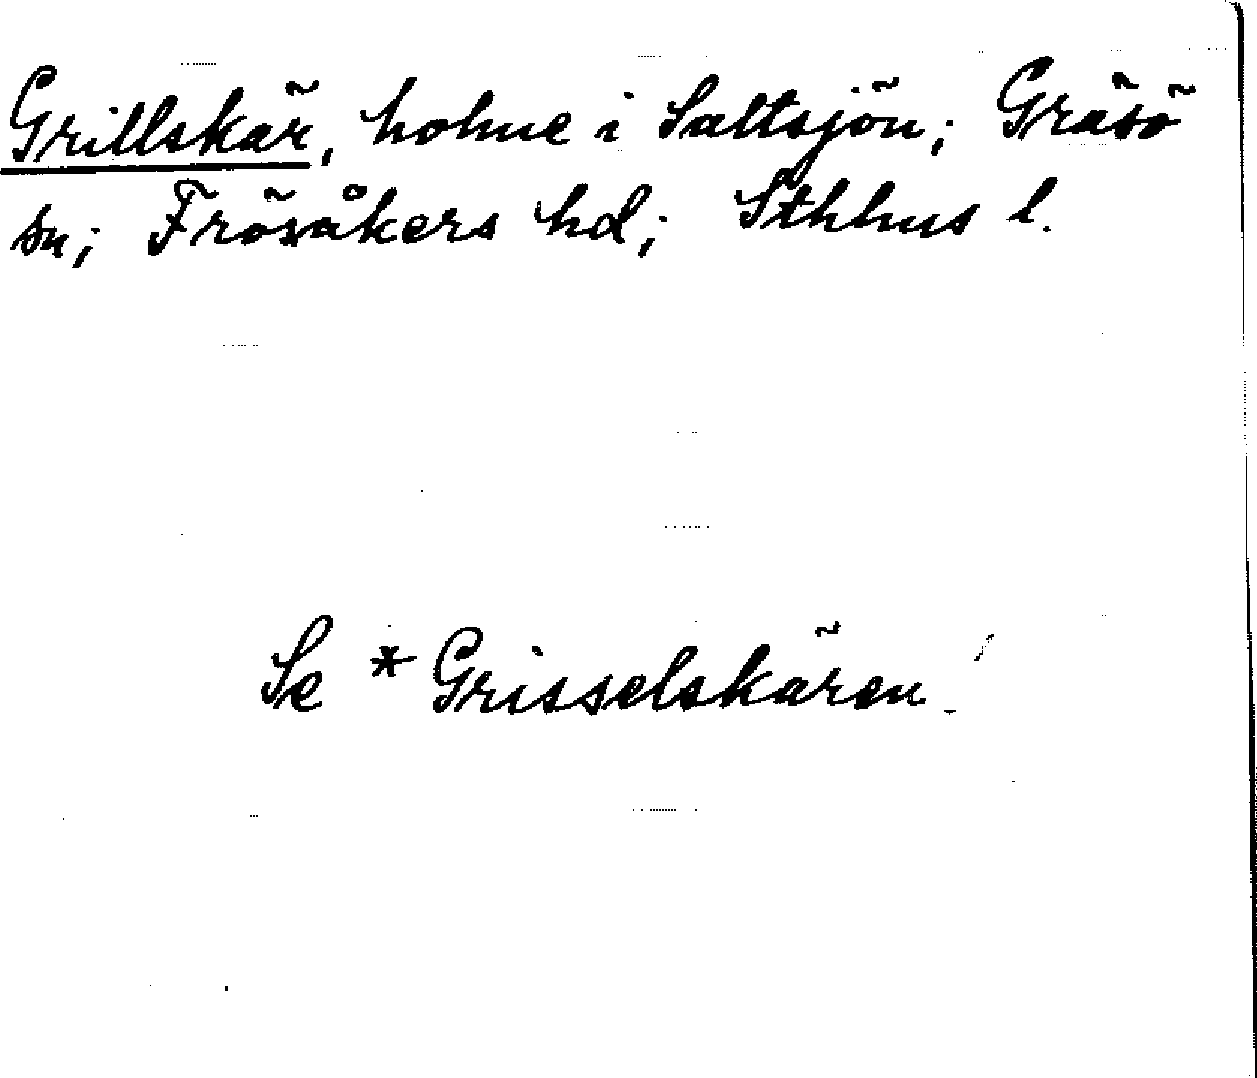 Grillskär, holme i Saltsjön; Gräsö
sn; Frösåkers hd; Sthlms l.
Se *Grisselskären.